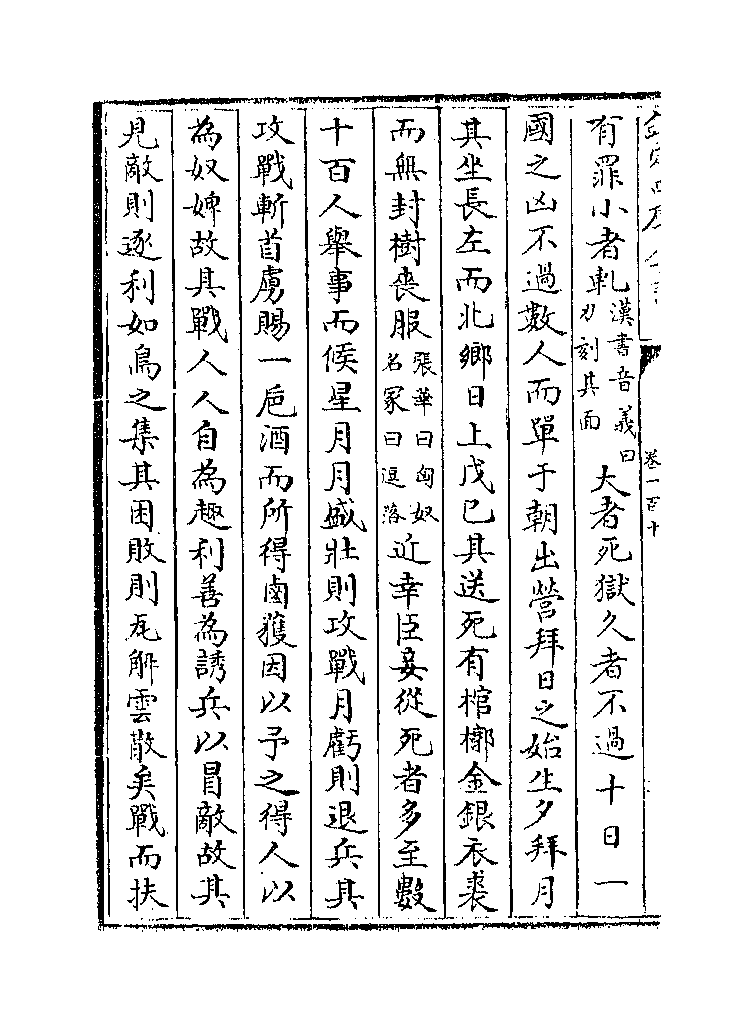 有罪小者軋漢書音義曰刀刻其面大者死獄久者不過十日一
國之凶不過數人而單于朝出營拜日之始生夕拜月
其坐長左而北鄉日上戊已其送死有棺槨金銀衣裘
而無封樹喪服張華曰匈奴名冢曰逗落近幸臣妾從死者多至數
十百人舉事而候星月月盛壯則攻戰月虧則退兵其
攻戰斬首虜賜一巵酒而所得鹵獲因以予之得人以
為奴婢故其戰人人自為趣利善為誘兵以冒敵故其
見敵則逐利如鳥之集其困敗則瓦解雲散矣戰而扶
卷一百十